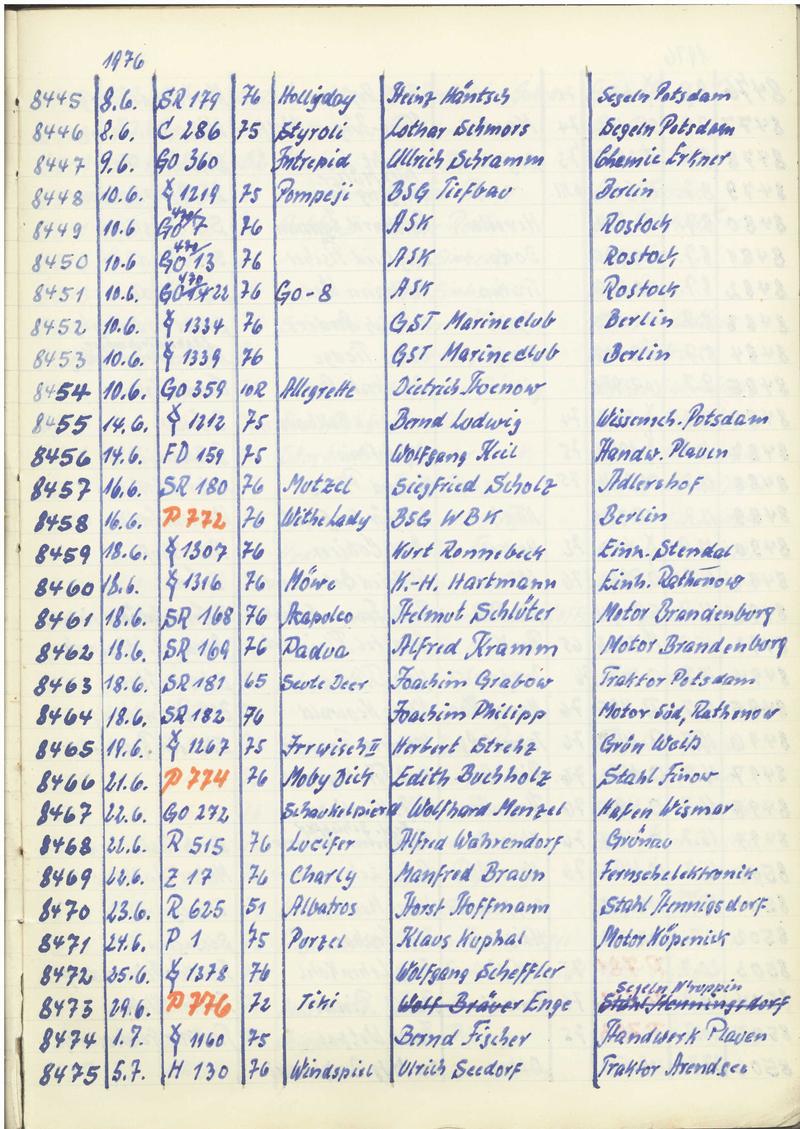 1976
8445 8.6. SR 179 76 Hollyday Heinz Häntsch Segeln Potsdam
8446 8.6. C 286 75 Styroli Lothar Schmors Segeln Potsdam
8447 9.6. GO 360 Intrepid Ullrich Schramm Chemie Erkner
8448 10.6. 1219 75 Pompeji BSG Tiefbau Berlin
8449 10.6 GO 470/7 76 ASK Rostock
8450 10.6 GO 470/13 76 ASK Rostock
8451 10.6. GO 470 1422 76 GO-8 ASK Rostock
8452 10.6. 1334 76 GST Marineclub Berlin
8453 10.6. 1339 76 GST Marineclub Berlin
8454 10.6. GO 359 10R Allegrette Dietrich Hoenow
8455 14.6. 1212 75 Bernd Ludwig Wissensch. Potsdam
8456 14.6. FD 159 75 Wolfgang Keil Handw. Plauen
8457 16.6. SR 180 76 Mutzel Siegfried Scholz Adlershof
8458 16.6. P 772 76 Withe Lady BSG WBK Berlin
8459 18.6. 1307 76 Kurt Ronnebeck Einh. Stendal
8460 18.6. 1316 76 Möwe K.-H. Hartmann Einh. Rathenow
8461 18.6. SR 168 76 Acapolco Helmut Schlüter Motor Brandenburg
8462 18.6. SR 169 76 Padua Alfred Kramm Motor Brandenburg
8463 18.6. SR 181 65 Seute Deer Joachim Grabow Traktor Potsdam
8464 18.6. SR 182 76 Joachim Philipp Motor Süd, Rathenow
8465 19.6. 1267 75 Irrwisch II Herbert Strehz Grün Weiß
8466 21.6. P 774 76 Moby Dick Edith Buchholz Stahl Finow
8467 22.6. GO 272 Schaukelpferd Wolfhard Menzel Hafen Wismar
8468 22.6. R 515 76 Lucifer Alfred Wahrendorf Grünau
8469 22.6. Z 17 76 Charly Manfred Braun Fernsehelektronik
8470 23.6. R 625 51 Albatros Horst Hoffmann Stahl Hennigsdorf
8471 24.6. P 1 75 Purzel Klaus Kuphal Motor Köpenick
8472 25.6. 1378 76 Wolfgang Scheffler
Segeln N'ruppin
8473 29.6. P 776 72 Tiki Wolf Bräuer Enge Stahl Henningsdorf
8474 1.7. 1160 75 Bernd Fischer Handwerk Plauen
8475 5.7. H 130 76 Windspiel Ulrich Seedorf Traktor Arendsee